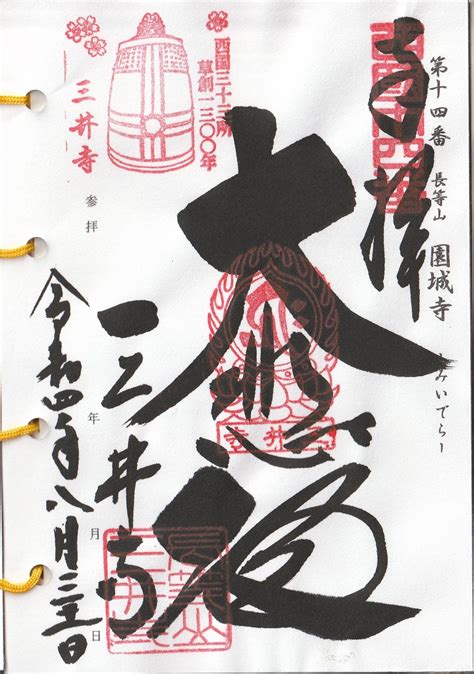 第十四番 長等山 園城寺 ーみいでらー
奉拝
西国十四番
大悲殿
西国三十三所
草創一三〇〇年
三井寺
三井寺
長等山
三井寺
参拝
年 月 日
令和四年八月
日